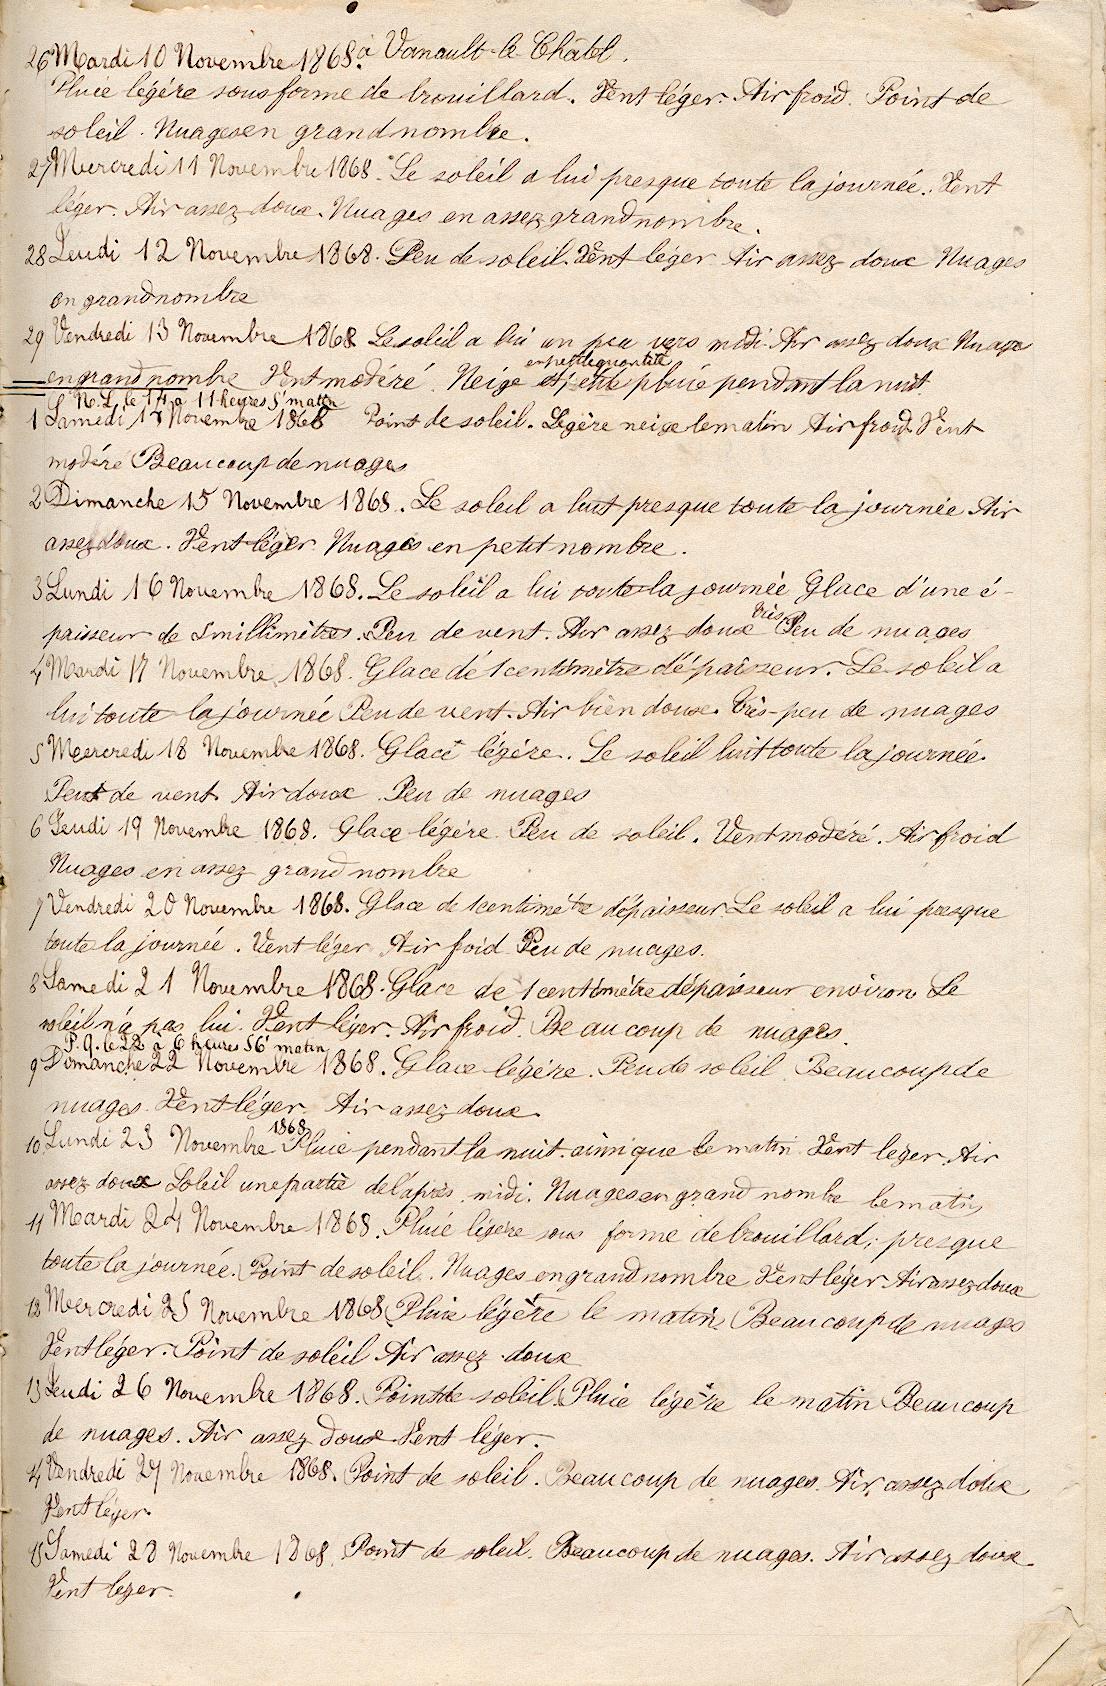 26 Mardi 10 Novembre 1868. à Vanault-le-Châtel.
Pluie légére sous forme de brouillard. Vent léger. Air froid. Point de
soleil. Nuages en grand nombre.
27 Mercredi 11 Novembre 1868. Le soleil a lui presque toute la journée. Vent
léger. Air assez doux. Nuages en assez grand nombre.
28 Jeudi 12 Novembre 1868. Peu de soleil. Vent léger Air assez doux Nuages
en grand nombre
29 Vendredi 13 Novembre 1868 Le soleil a lui un peu vers midi. Air assez doux Nuage
en petite quantité
en grand nombre Vent modéré. Neige et pluie pendant la nuit
N.L. le 14 à 11 heures 5' matin
1 Samedi 14 Novembre 1868 Point de soleil. Légère neige le matin Air froid. Vent
modéré Beaucoup de nuages
2 Dimanche 15 Novembre 1868. Le soleil a luit presque toute la journée Air
assez doux. Vent léger. Nuages en petit nombre.
3 Lundi 16 Novembre 1868. Le soleil a lui toute la journée Glace d'une é-
très
paisseur de 5 millimètres. Peu de vent. Air assez doux Peu de nuages
4 Mardi 17 Novembre 1868. Glace de 1 centimètre d'épaisseur. Le soleil a
lui toute la journée Peu de vent. Air bien doux. Très-peu de nuages
5 Meercredi 18 Novembre 1868. Glace légére. Le soleil luit toute la journée.
Peu de vent. Air doux. Peu de nuages
6 Jeudi 19 Novembre 1868. Glace légére Peu de soleil. Vent modéré. Air froid
Nuages en assez grand nombre
7 Vendredi 20 Novembre 1868. Glace de 1 centimètre dépaisseur Le soleil a lui presque
toute la journée. Vent léger Air foid Peu de nuages.
8 Samedi 21 Novembre 1868. Glace de 1 centimètre dépaisseur environ Le
soleil n'a pas lui. Vent léger. Air froid. Beaucoup de nuages.
P.Q. le 22 à 6 heures 56' matin
9 Dimanche 22 Novembre 1868. Glace légére. Peu de soleil Beaucoup de
nuages. Vent léger Air assez doux.
1868
10 Lundi 23 Novembre Pluie pendant la nuit ainsi que le matin. Vent leger. Air
assez doux Soleil une partie de l'après midi. Nuages en grand nombre le matin
11 Mardi 24 Novembre 1868. Pluie légère sous forme de brouillard, presque
toute la journée. Point de soleil. Nuages en grand nombre Vent léger Air assez doux
12 Meercredi 25 Novembre 1868. Pluie légère le matin. Beaucoup de nuages
Vent léger. Point de soleil Air assez doux
13 Jeudi 26 Novembre 1868. Point de soleil. Pluie légère le matin Beaucoup
de nuages. Air assez doux Vent léger.
14 Vendredi 27 Novembre 1868. Point de soleil. Beaucoup de nuages. Air assez doux
Vent léger.
15 Samedi 28 Novembre 1868. Point de soleil. Beaucoup de nuages. Air assez doux.
Vent leger.